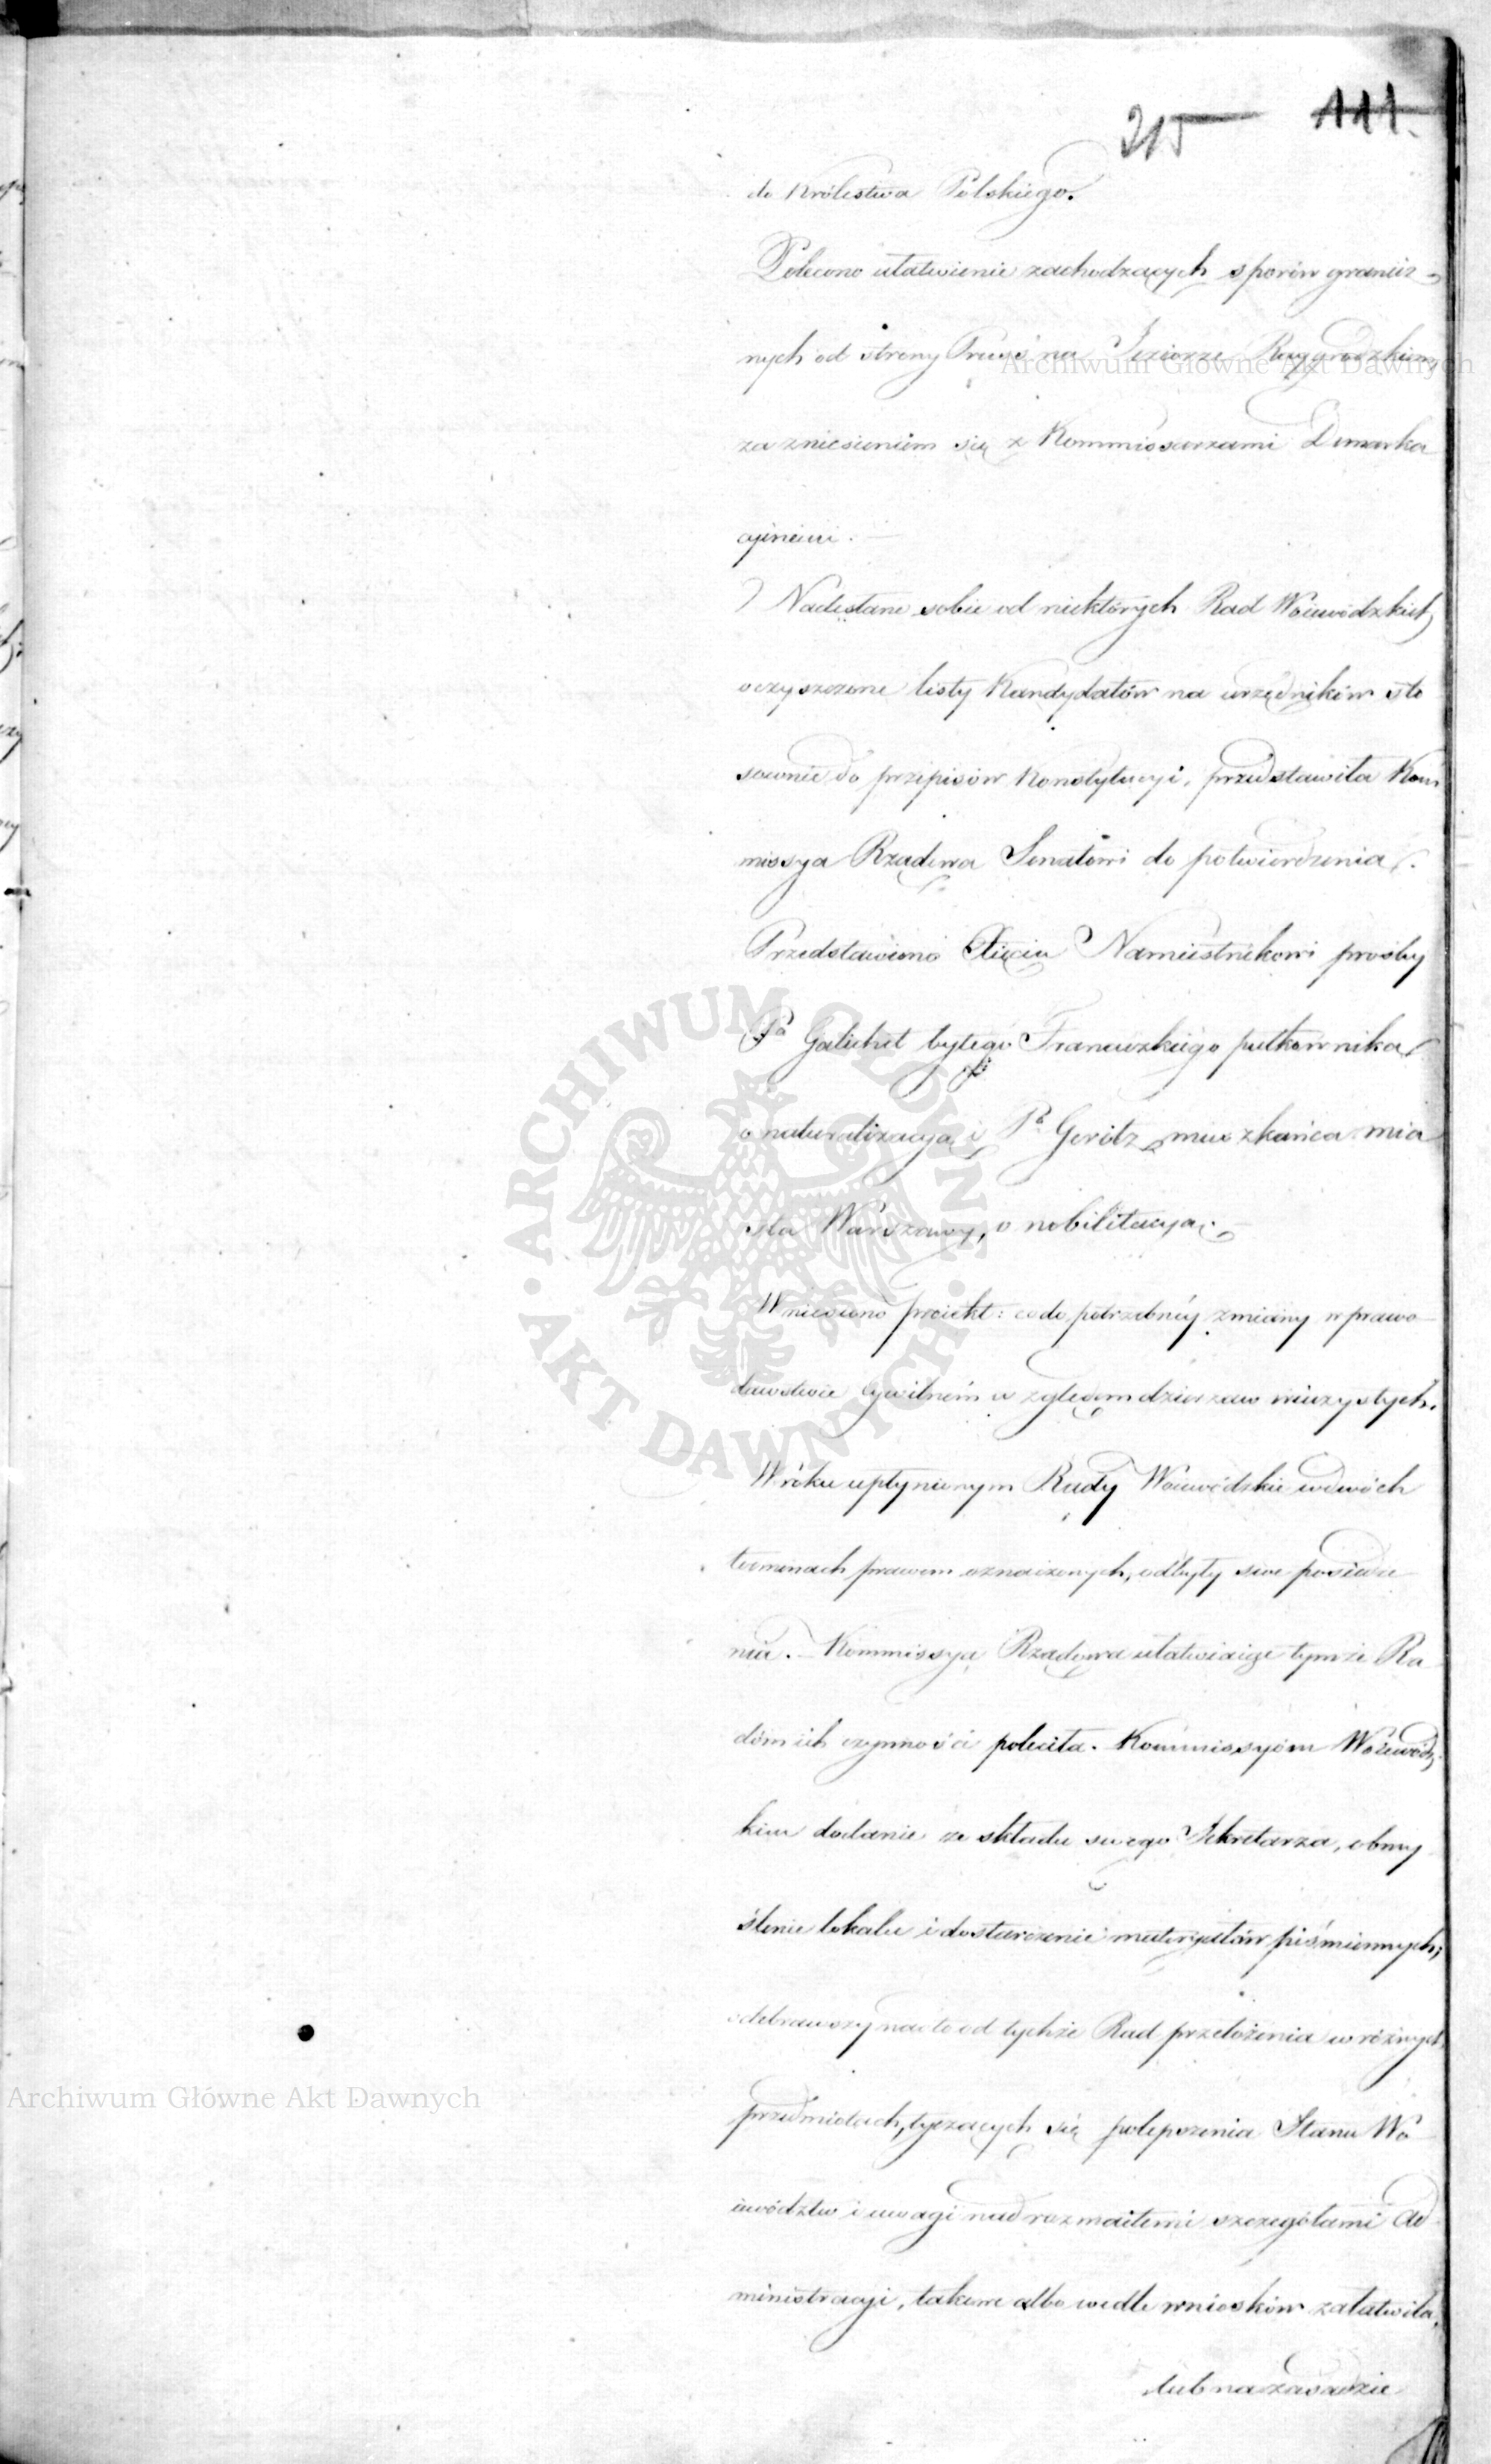 215 111.
do Królestwa Polskiego.
Polecono ułatwienie zachodzących sporów granicz-
nych od strony Pruss na Jeziorze Raygrodzkim,
za zniesieniem się z Kommissarzami Demarka
cyinemi. —
Nadesłane sobie od niektórych Rad Woiewódzkich
oczyszczone listy Kandydatów na urzędników sto
sownie do przepisów Konstytucyi, przedstawiła Kom
missya Rządowa Senatowi do potwierdzenia.
Przedstawiono Xięciu Namiestnikowi prośby
Pa Galichet byłego Francuzkiego pułkownika
o naturalizacyą i Pa Goritz mieszkańca mia
sta Warszawy, o nobilitacyą. —
Wniesiono proiekt: co do potrzebnéy zmiany w prawo-
dawstwie cywilném względem dzierzaw wieczystych.
W roku upłynionym Rady Woiewódzkie w dwóch
terminach prawem oznaczonych, odbyły swe posiedze
nia. — Kommissya Rządowa ułatwiaiąc tymże Ra
dóm ich czynności poleciła Kommissyóm Woiewódz
kim dodanie ze składu swego Sekretarza, obmy
ślenie lokalu i dostarczenie materyałów piśmiennych;
odebrawszy nadto od tychże Rad przełożenia w różnych
przedmiotach, tyczących się polepszenia Stanu Wo
iewództw i uwagi nad rozmaitemi szczegółami Ad
ministracyi, takowe albo wedle wniosków załatwiła,
lub na zasadzie
Archiwum Główne Akt Dawnych
ARCHIWUM GŁÓWNE AKT DAWNYCH
Archiwum Główne Akt Dawnych